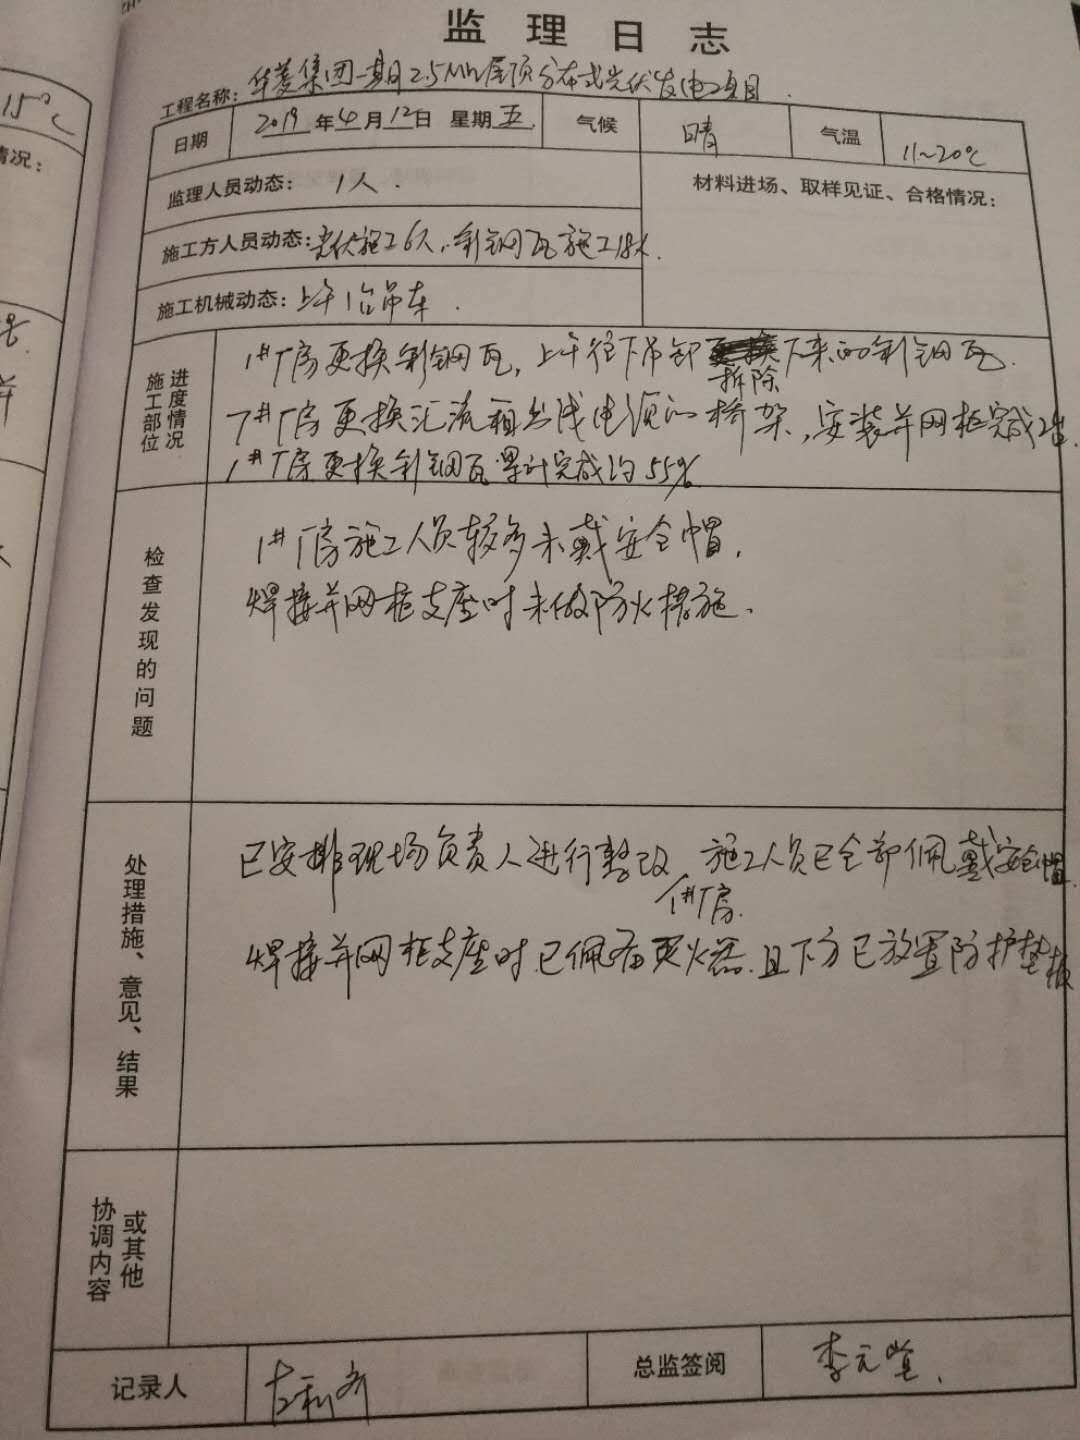 监理日志
工程名称：华菱集团一期2.5MW屋顶分布式光伏发电项目.
日期 2019年4月12日 星期五 气候 晴 气温 11~20℃
监理人员动态： 1人.
材料进场、取样见证、合格情况：
施工方人员动态：光伏施工6人，彩钢瓦施工18人.
施工机械动态：上午1台吊车.
施工部位
进度情况
1#厂房更换彩钢瓦，上午往下吊卸拆除下来的彩钢瓦.
7#厂房更换汇流箱出线电源的桥架，安装并网柜完成
1#厂房更换彩钢瓦累计完成约55%
检查发现的问题
1#厂房施工人员较多未戴安全帽，
焊接并网柜支座时未做防火措施.
处理措施、意见、结果
已安排现场负责人进行整改，1#厂房.施工人员已全部佩戴安全帽
焊接并网柜支座时已佩备灭火器.且下方已放置防护垫板
协调内容
或其他
记录人 总监签阅 李元
15℃
情况：